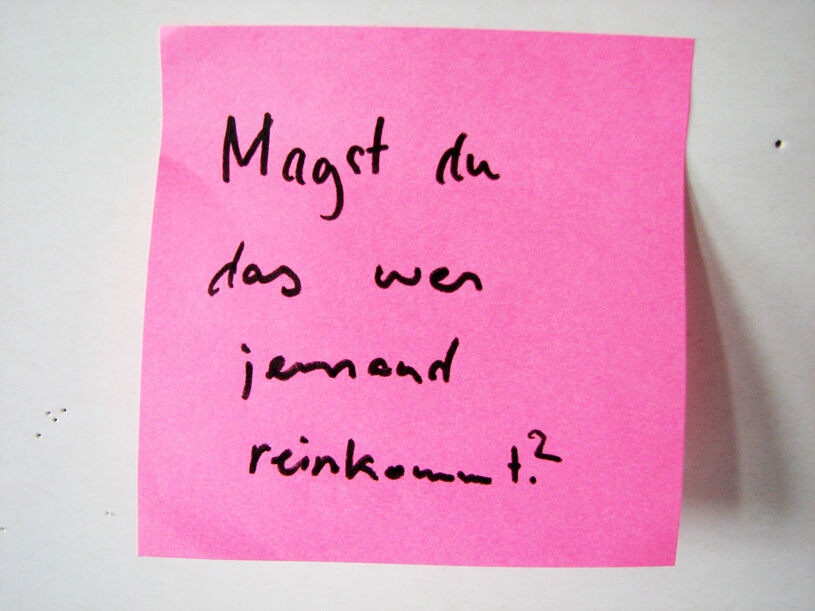 Magst du
das wer
jemand
reinkommt?